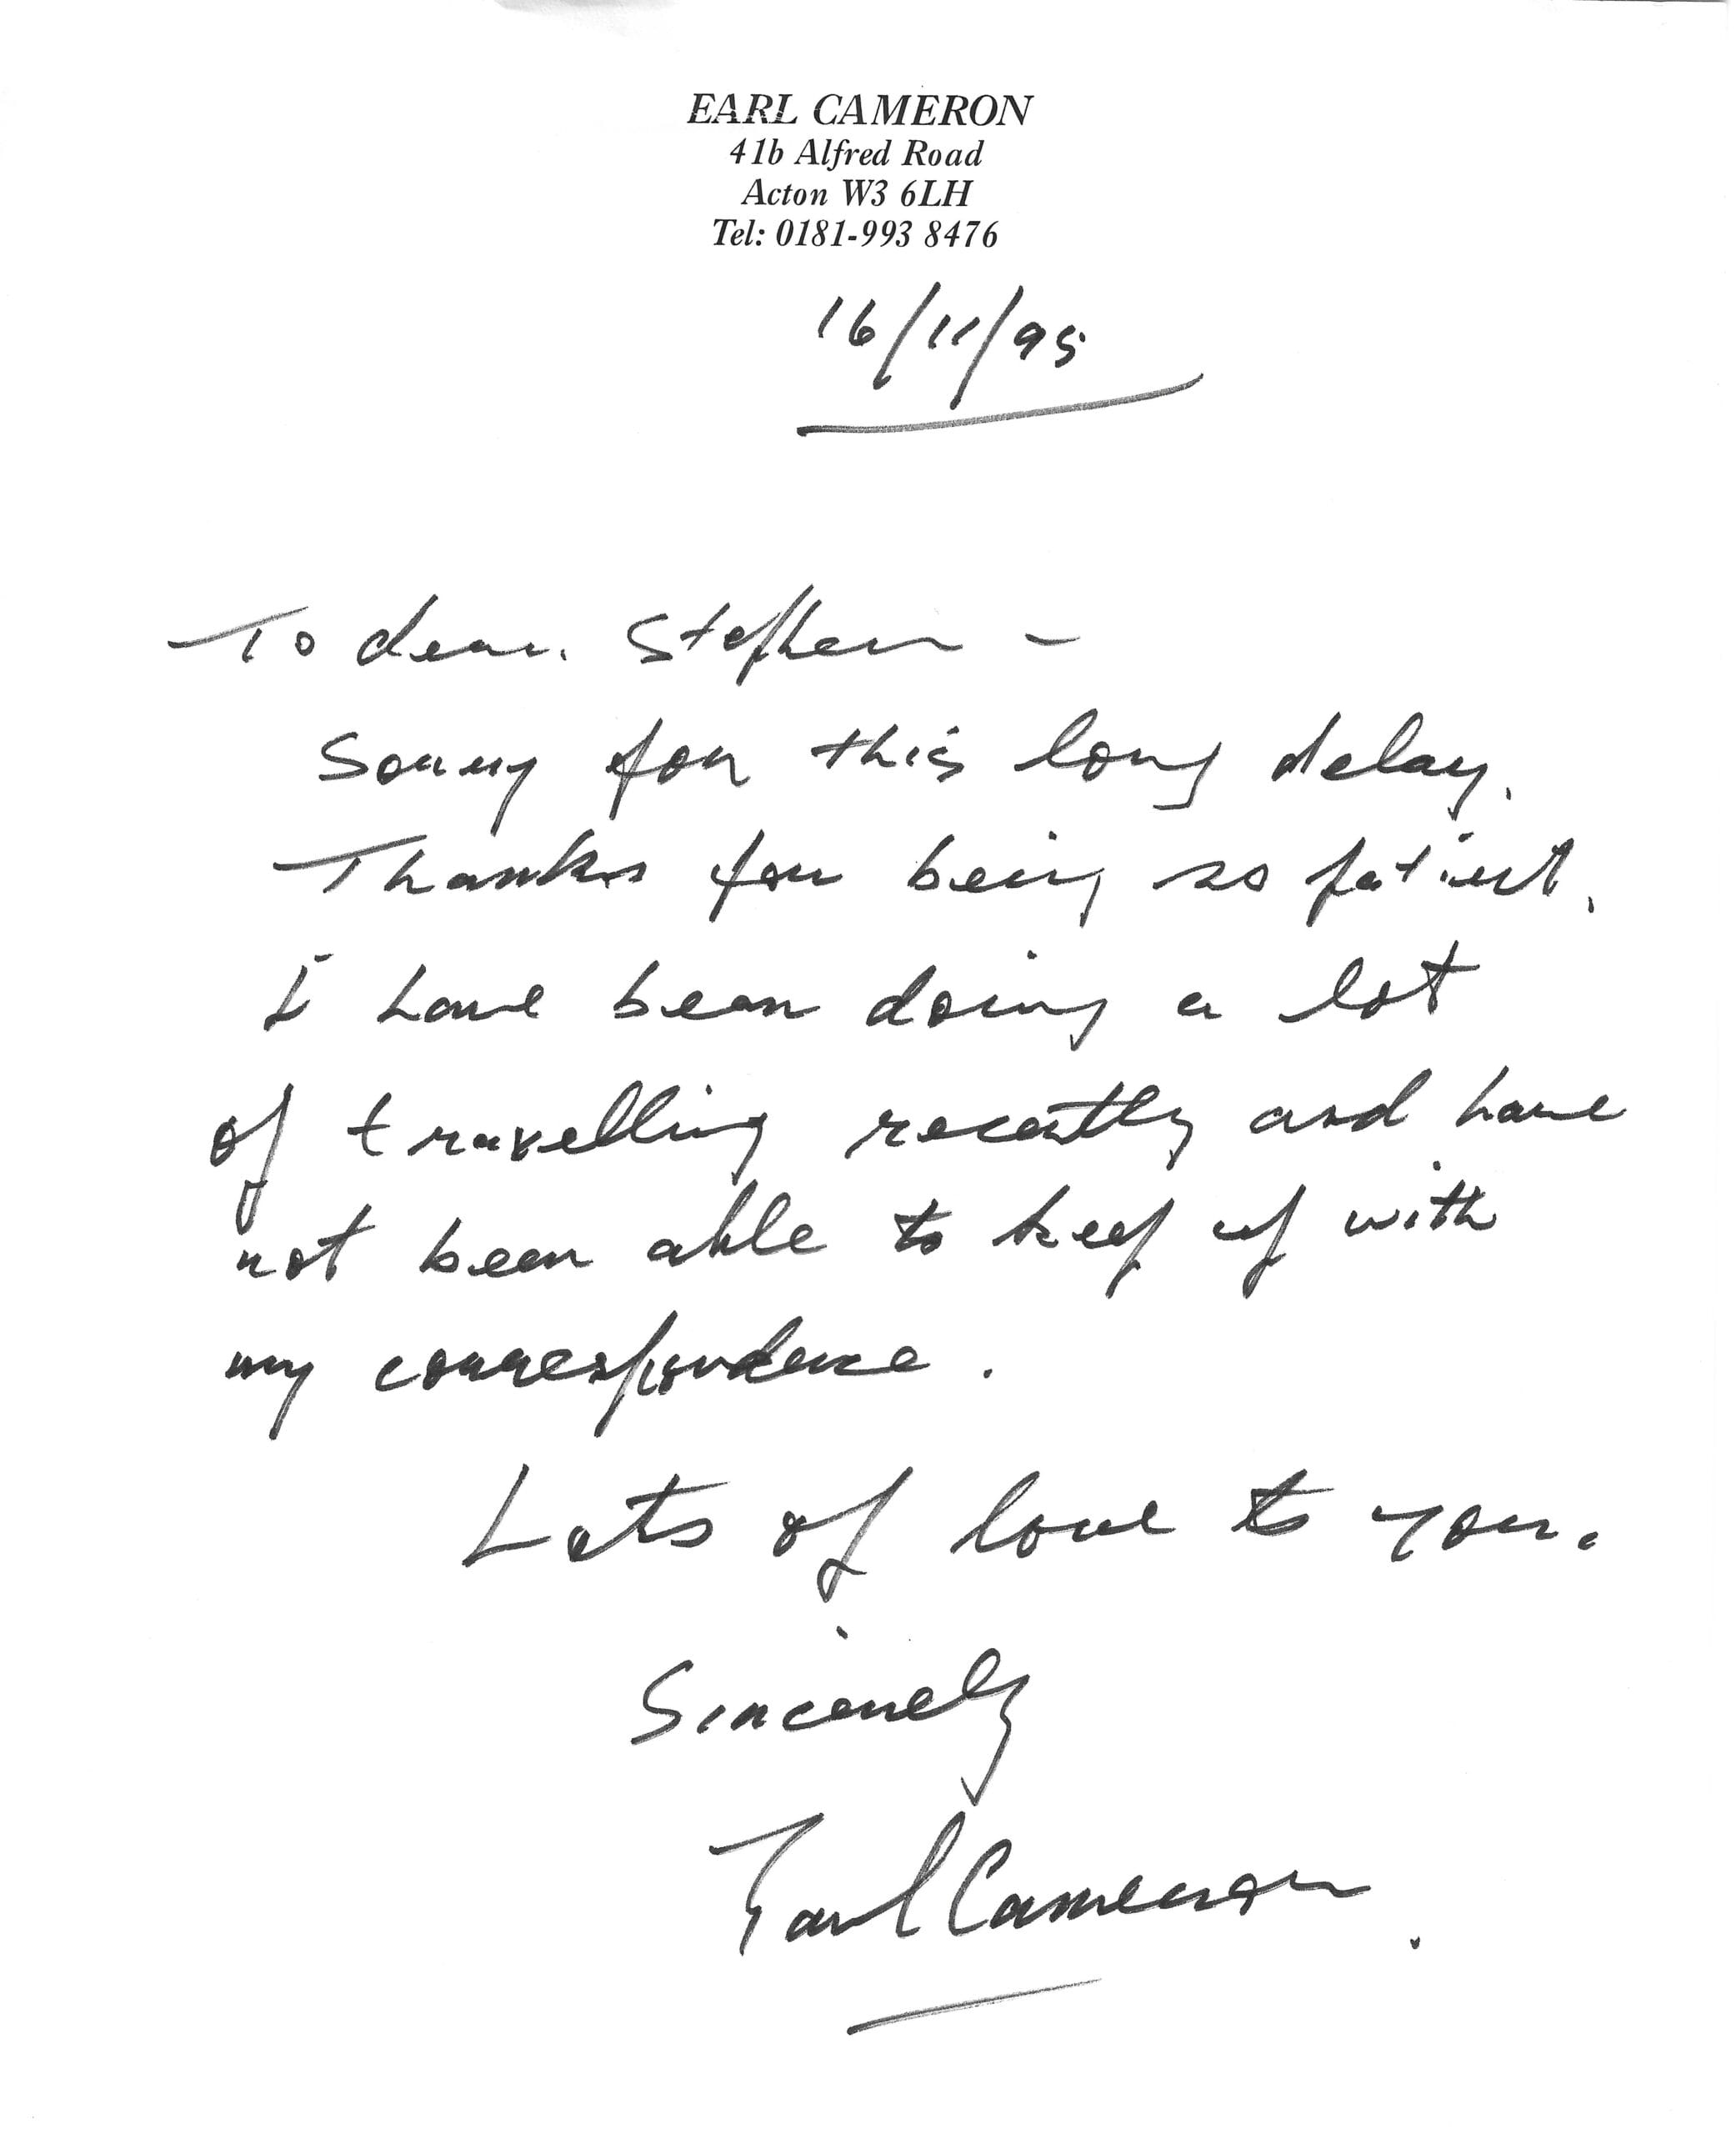 EARL CAMERON
41b Alfred Road
Acton W3 6LH
Tel: 0181-993 8476
16/11/95
To dear Stephen -
Sorry for this long delay.
Thanks for being so patient.
I have been doing a lot
of travelling recently and have
not been able to keep up with
my correspondence.
Lots of love to you.
Sincerely
Earl Cameron.